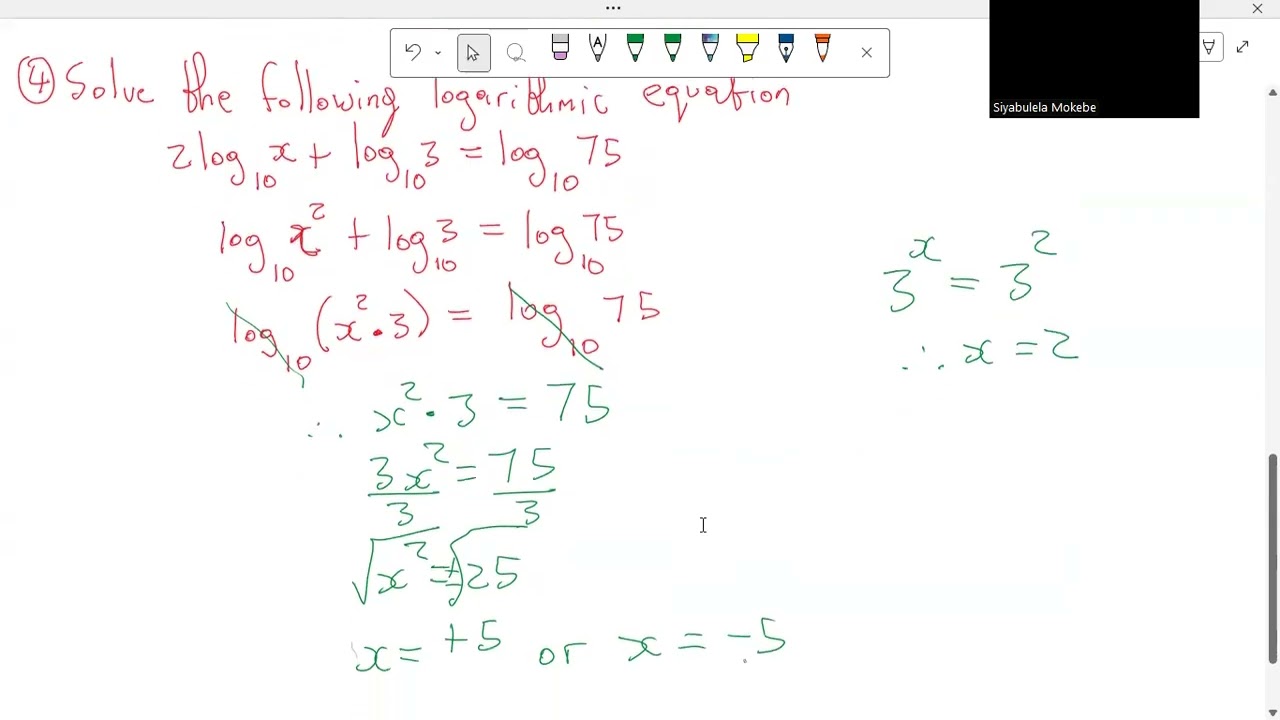 Siyabulela Mokebe
④ Solve the following logarithmic equation
2log₁₀x + log₁₀3 = log₁₀75
log₁₀x² + log₁₀3 = log₁₀75
log₁₀(x²·3) = log₁₀75
∴ x²·3 = 75
3x²/3 = 75/3
√x² = ±√25
x = +5 or x = -5
3ˣ = 3²
∴ x = 2